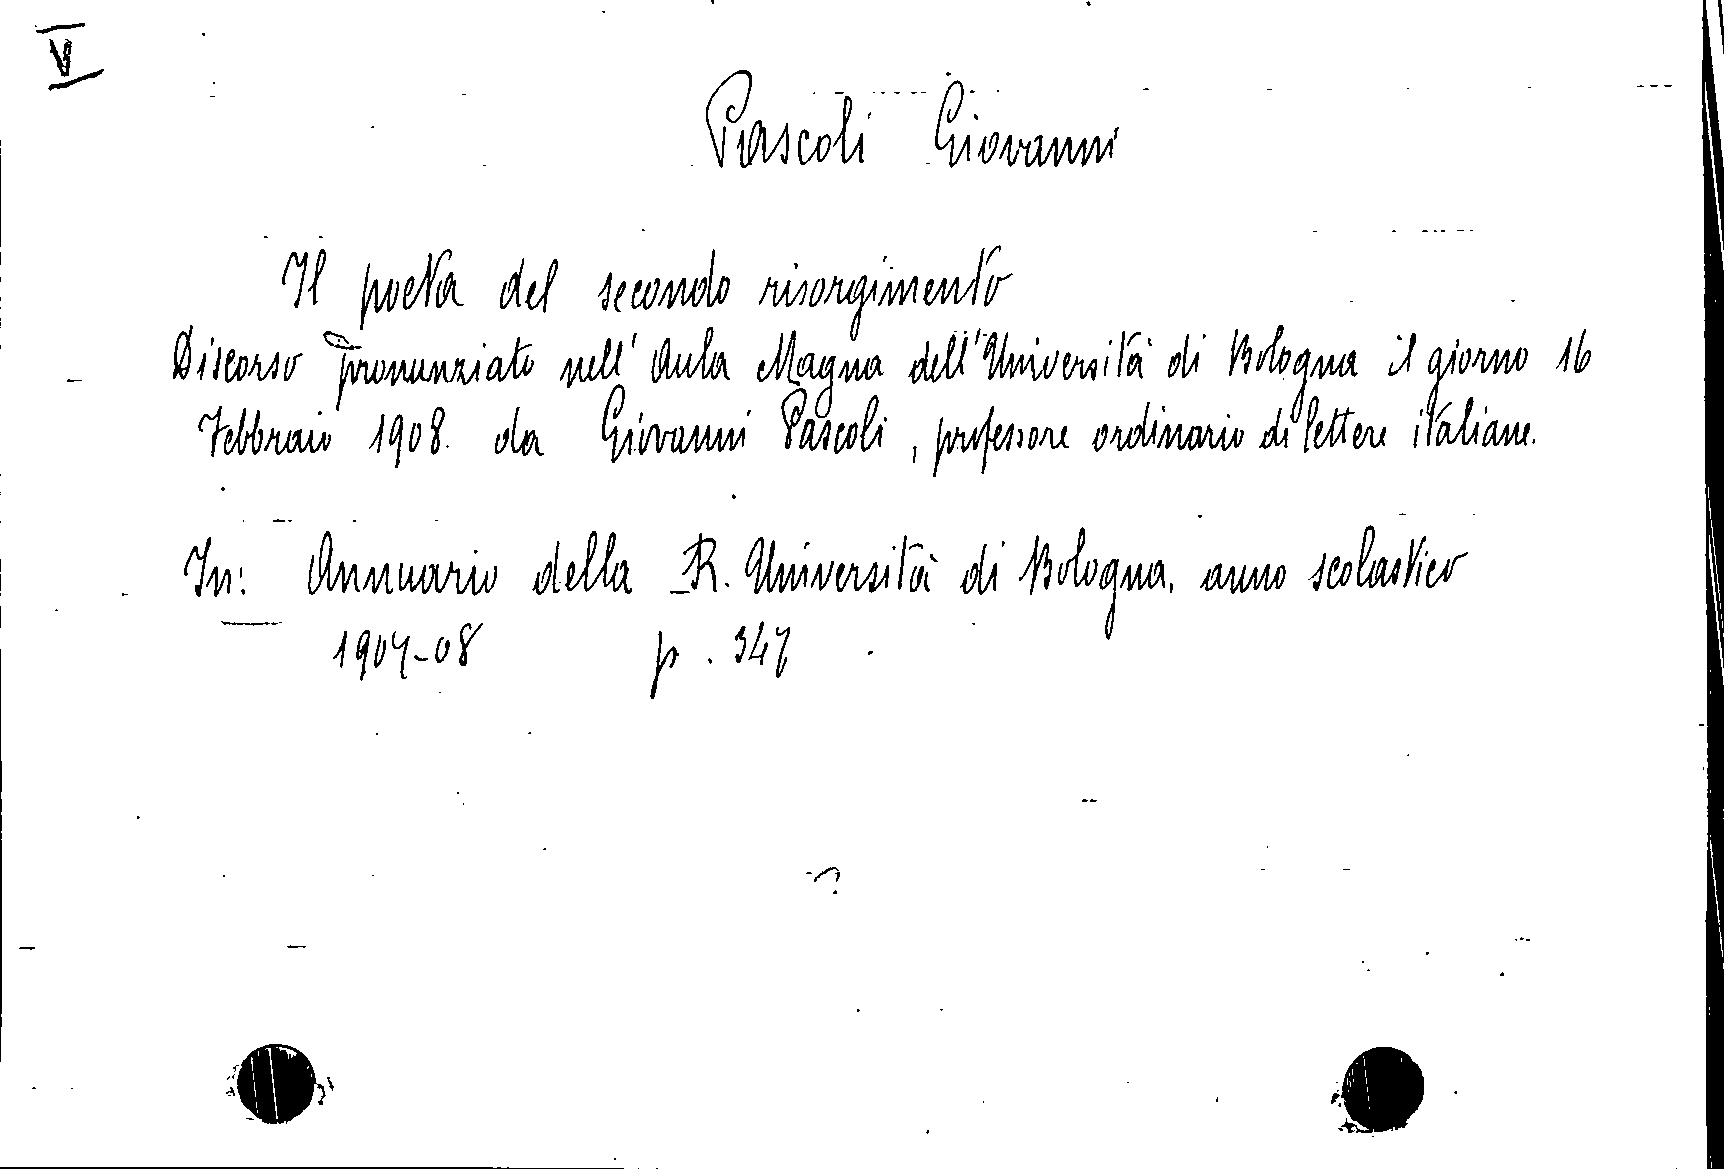 V
Pascoli Giovanni
Il poeta del secondo risorgimento
Discorso pronunziato nell'Aula Magna dell'Università di Bologna il giorno 16
Febbraio 1908. da Giovanni Pascoli, professore ordinario di lettere italiane.
In: Annuario della R. Università di Bologna, anno scolastico
1907-08 p. 347